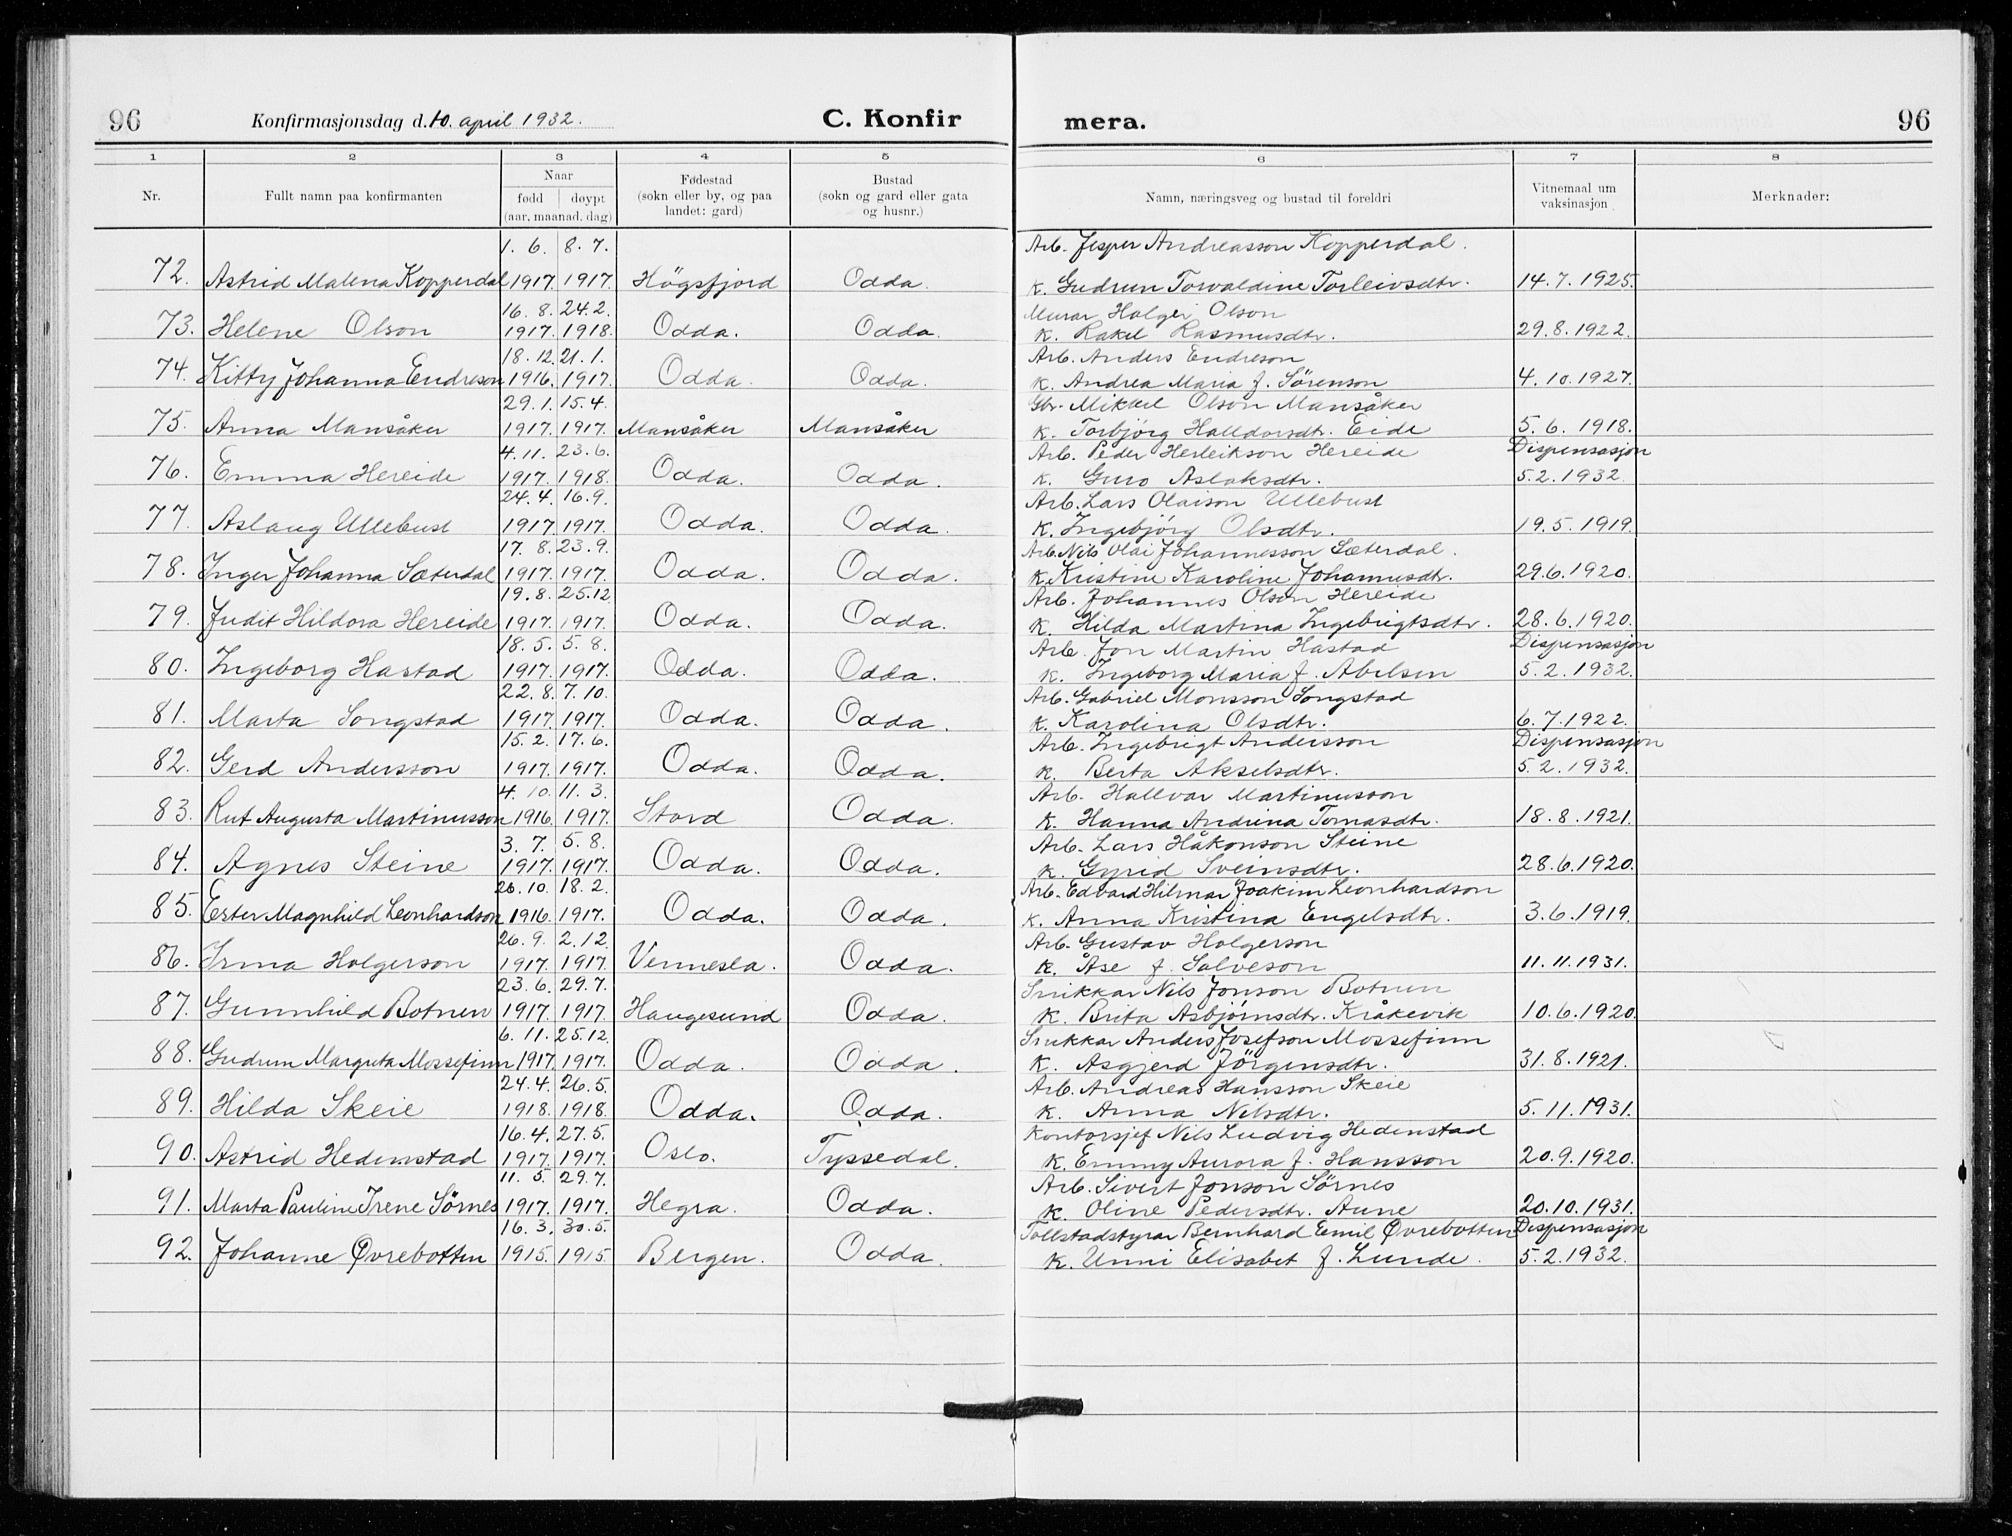 96 Konfirmasjonsdag d. 10. april 1932. C. Konfirmera. 96
1 2 3 4 5 6 7 8
Nr. Fullt namn paa konfirmanten Naar fødd døypt (aar, maanad, dag) Fødestad (sokn eller by, og paa landet: gard) Bustad (sokn og gard eller gata og husnr.) Namn, næringsveg og bustad til foreldri Vitnemaal um vaksinasjon Merknader:
1. 6. 8. 7. Arb. Jesper Andreasson Kopperdal.
72. Astrid Malena Kopperdal 1917. 1917. Högsfjord Odda. K. Gudrun Torvaldine Torleivsdtr. 14.7.1925.
16. 8. 24.2. Murar Holger Olson
73. Helene Olson 1917. 1918. Odda. Odda. K. Rakel Rasmusdtr. 29.8.1922.
18.12. 21.1. Arb. Anders Endreson
74. Kitty Johanna Endreson 1916. 1917. Odda. Odda. K. Andrea Maria f. Sörenson 4.10.1927.
29.1. 15.4. Gbr. Mikael Olson Mansåker
75. Anna Mansåker 1917. 1917. Mansåker Mansåker K. Torbjörg Halldorsdtr. Eide 5.6.1918.
4.11. 23.6. Arb. Peder Herleikson Hereide Dispensasjon
76. Emma Hereide 1917. 1918. Odda. Odda. K. Guro Aslaksdtr. 5.2.1932.
24.4. 16.9. Arb. Lars Olaison Ullebust
77. Aslaug Ullebust 1917. 1917. Odda. Odda. K. Ingebjörg Olsdtr. 19.5.1919.
17. 8. 23.9. Arb. Nils Olai Johannesson Sæterdal.
78. Inger Johanna Sæterdal 1917. 1917. Odda. Odda. K. Kristine Karoline Johannesdtr. 29.6.1920.
19.8. 25.12 Arb. Johannes Olson Hereide
79. Judit Hildora Hereide 1917. 1917. Odda. Odda. K. Hilda Martina Ingebrigtsdtr. 28.6.1920.
18.5. 5.8. Arb. Jon Martin Hastad Dispensasjon
80. Ingeborg Hastad 1917. 1917. Odda. Odda. K. Ingeborg Maria f. Abelsen 5.2.1932.
22.8. 7.10. Arb. Gabriel Monsson Songstad
81. Marta Songstad 1917. 1917. Odda. Odda. K. Karolina Olsdtr. 6.7.1922.
15.2. 17.6. Arb. Ingebrigt Andersson Dispensasjon
82. Gerd Andersson 1917. 1917. Odda. Odda. K. Berta Akselsdtr. 5.2.1932.
4.10. 11.3. Arb. Hallvar Martinusson
83. Rut Augusta Martinusson 1916. 1917. Stord Odda. K. Hanna Andrina Tomasdtr. 18.8.1921.
3.7. 5.8. Arb. Lars Håkonson Steine
84. Agnes Steine 1917. 1917. Odda. Odda. K. Gyrid Sveinsdtr. 28.6.1920.
26.10. 18.2. Arb. Edvard Hilmar Joakim Leonhardson
85. Ester Magnhild Leonhardson 1916. 1917. Odda. Odda. K. Anna Kristina Engelsdtr. 3.6.1919.
26.9. 2.12. Arb. Gustav Holgerson
86. Irma Holgerson 1917. 1917. Vennesla. Odda. K. Åse f. Salveson 11.11.1931.
23.6. 29.7. Snikkar Nils Jonson Botnen
87. Gunnhild Botnen 1917. 1917. Haugesund Odda. K. Brita Asbjörnsdtr. Kråkevik 10.6.1920.
6.11. 25.12. Snikkar Anders Josefson Mossefinn
88. Gudrun Margreta Mossefinn 1917. 1917. Odda. Odda. K. Asgjerd Jörgensdtr. 31.8.1921.
24.4. 26.5. Arb. Andreas Hansson Skeie
89. Hilda Skeie 1918. 1918. Odda. Odda. K. Anna Nilsdtr. 5.11.1931.
16.4. 27.5. Kontorsjef Nils Ludvig Hedenstad
90. Astrid Hedenstad 1917. 1917. Oslo. Tyssedal. K. Emmy Aurora f. Hansson 20.9.1920.
11.5. 29.7. Arb. Sivert Jonson Sörnes
91. Marta Pauline Irene Sörnes 1917. 1917. Hegra. Odda. K. Oline Pedersdtr. Aune 20.10.1931.
16.3. 30.5. Tollstadstyrar Bernhard Emil Øvrebotten Dispensasjon
92. Johanne Øvrebotten 1915. 1915. Bergen. Odda. K. Unni Elisabet f. Lunde. 5.2.1932.